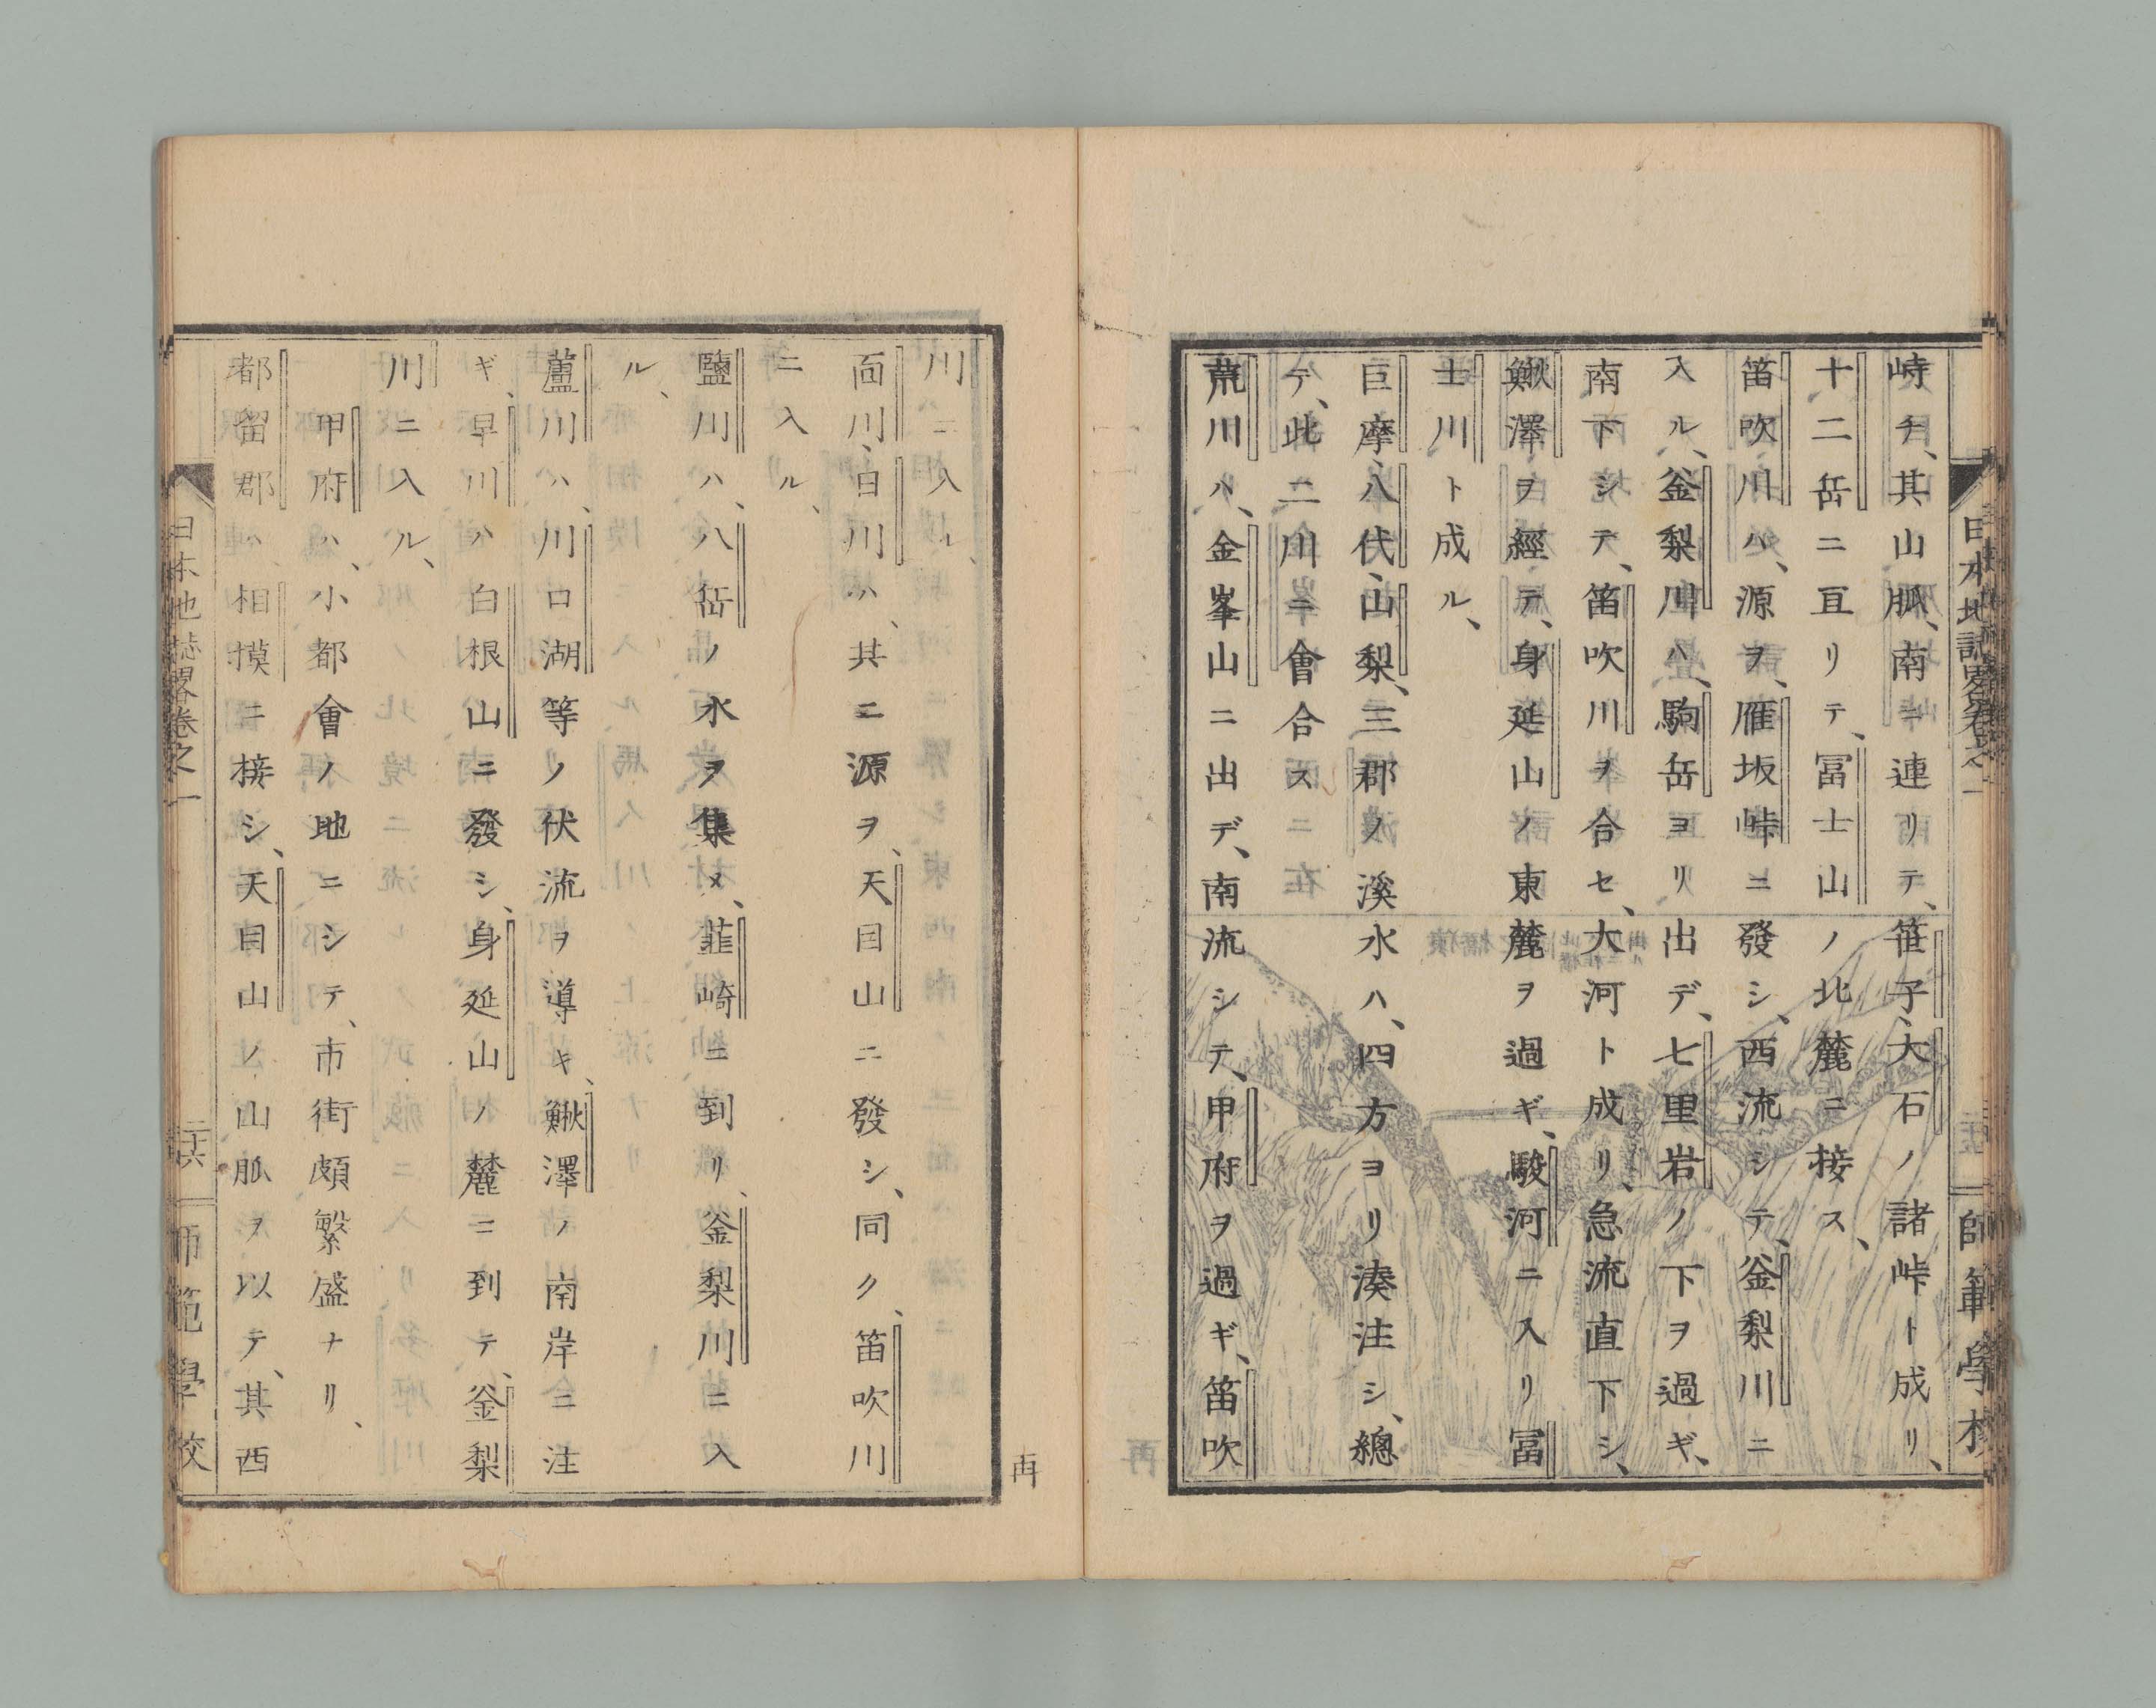 峙チ、其山脈、南ニ連リテ、笹子、大石ノ諸峠ト成リ、
十二岳ニ亘リテ、冨士山ノ北麓ニ接ス、
笛吹川ハ、源ヲ、雁坂峠ニ發シ、西流シテ、釜梨川ニ
入ル、釜梨川ハ、駒岳ヨリ出デ、七里岩ノ下ヲ過ギ、
南下シテ、笛吹川ヲ合セ、大河ト成リ、急流直下シ、
鰍澤ヲ經テ、身延山ノ東麓ヲ過ギ、駿河ニ入リ冨
士川ト成ル、
巨摩、八代、山梨、三郡ノ溪水ハ、四方ヨリ湊注シ、總
テ、此二川ニ會合ス
荒川ハ、金峯山ニ出デ、南流シテ、甲府ヲ過ギ、笛吹
日本地誌略卷之一
師範學校
川ニ入ル、
面川、日川ハ、其ニ源ヲ、天目山ニ發シ、同ク、笛吹川
ニ入ル、
鹽川ハ、八岳ノ水ヲ集メ、韮崎ニ到リ、釜梨川ニ入
ル、
蘆川ハ、川口湖等ノ伏流ヲ導キ、鰍澤ノ南岸ニ注
ギ、早川ハ白根山ニ發シ、身延山ノ麓ニ到テ、釜梨
川ニ入ル、
甲府ハ、小都會ノ地ニシテ、市街頗繁盛ナリ、
都留郡ハ、相摸ニ接シ、天目山ノ山脈ヲ以テ、其西
日本地誌畧卷之一
二十六
師範學校
再